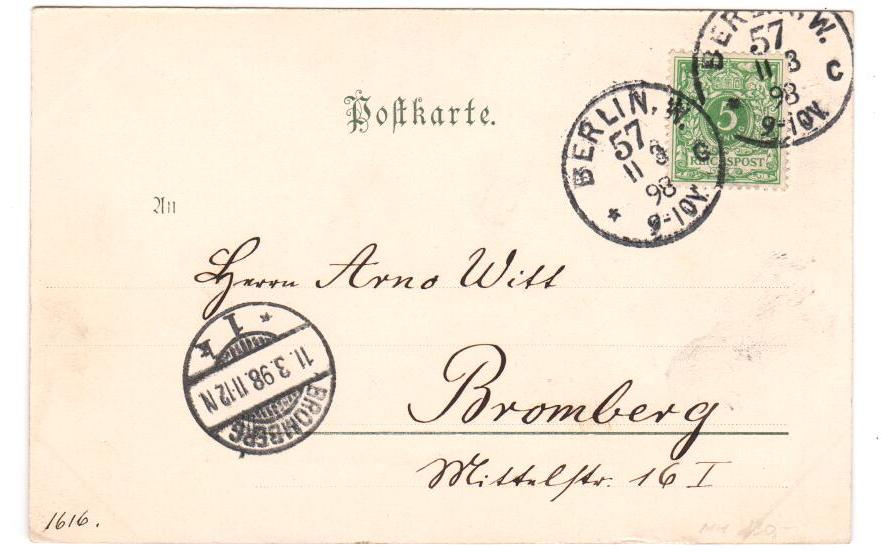 BERLIN, W.
57
11 3
98
9-10V.
C
BERLIN, W.
57
11 3
98
9-10V.
C
5
REICHSPOST
Postkarte.
An
Herrn Arno Witt
1 k
11.3.98.11-12N
BROMBERG
Bromberg
Mittelstr. 16 I
1616.